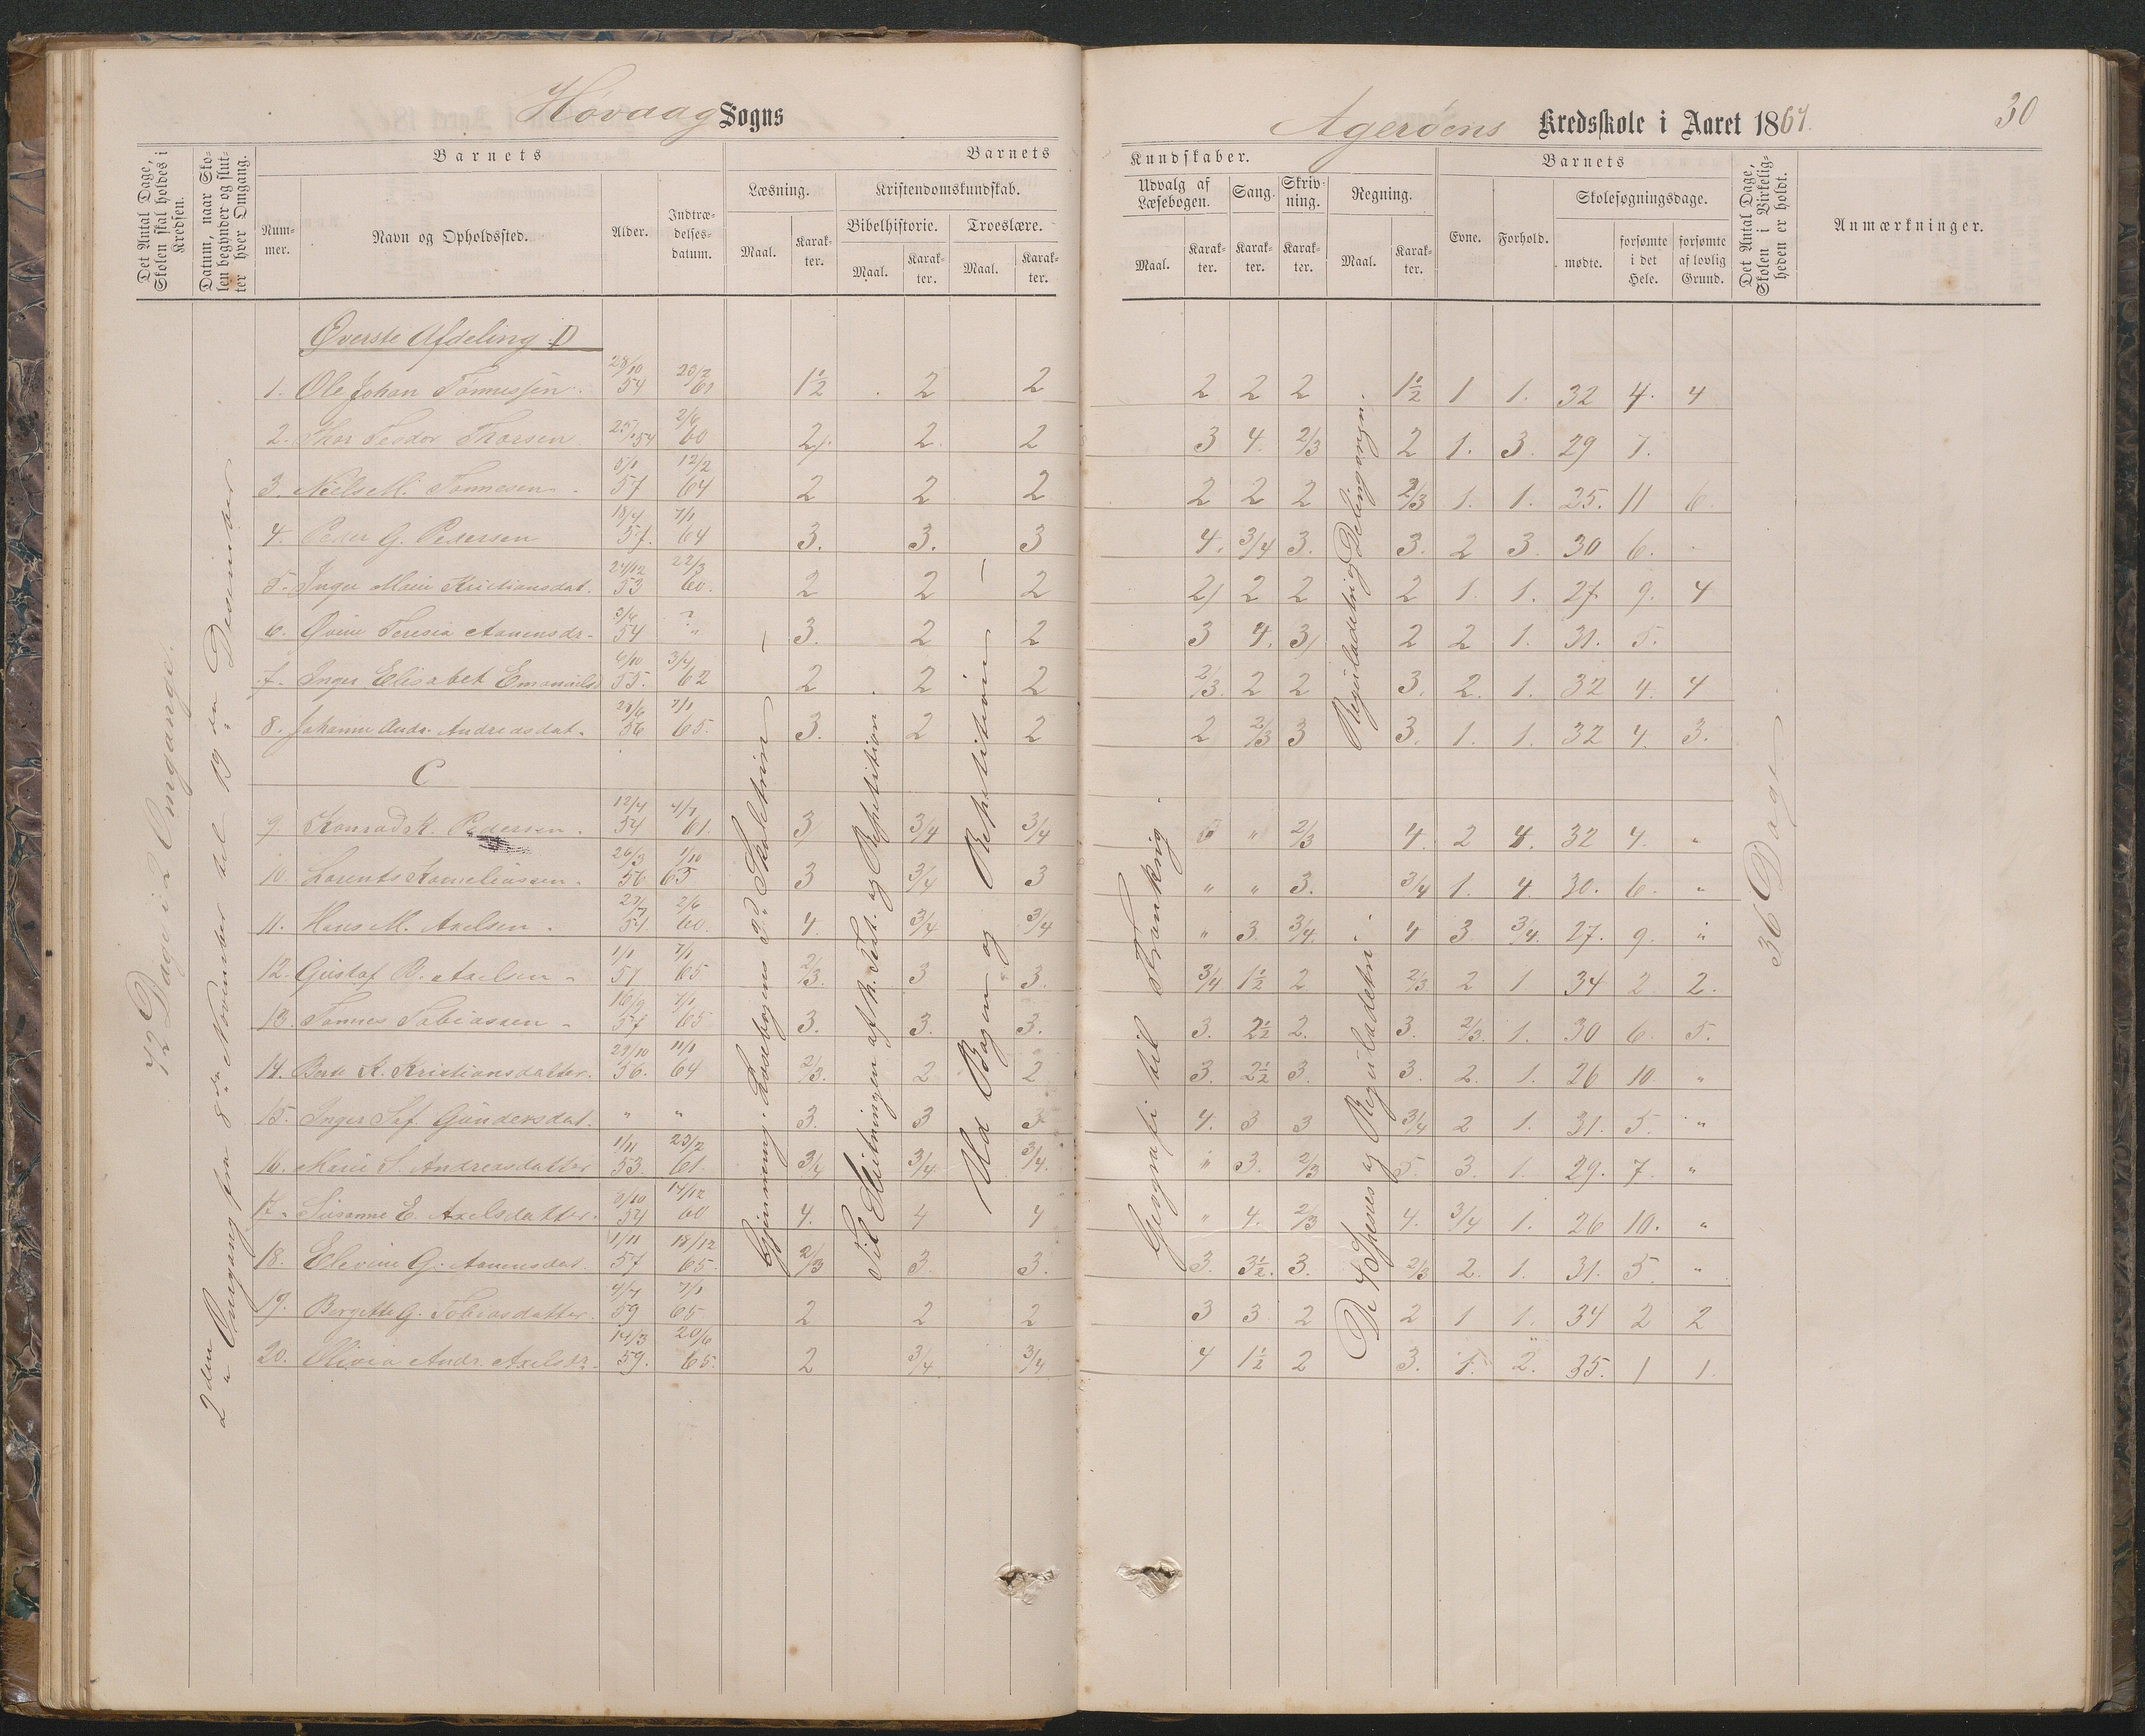 Høvaag Sogns
Agerøens Kredsskole i Aaret 1867.
30
Det Antal Dage, Skolen skal holdes i Kredsen.
Datum, naar Skolen begynder og slutter hver Omgang.
Barnets
Nummer.
Navn og Opholdssted.
Alder.
Indtrædelsesdatum.
Barnets Kundskaber.
Læsning.
Maal.
Karakter.
Kristendomskundskab.
Bibelhistorie.
Maal.
Karakter.
Troeslære.
Maal.
Karakter.
Udvalg af Læsebogen.
Maal.
Karakter.
Sang.
Karakter.
Skrivning.
Karakter.
Regning.
Maal.
Karakter.
Barnets
Evne.
Forhold.
Skolesøgningsdage.
mødte.
forsømte i det Hele.
forsømte af lovlig Grund.
Det Antal Dage, Skolen i Virkeligheden er holdt.
Anmærkninger.
72 Dage i 2 Omgange.
2den Omgang fra 8de November til 19de Deceimber
Øverste Afdeling D
1. Ole Johan Tønnessen. 28/10 54 23/2 61 1½ 2 2 2 2 2 1½ 1 1. 32 4. 4
2. Thor Tesdor Thorsen 25/1 54 2/6 60 2 2. 2 3 4. 2/3 2 1. 3. 29 7.
3. Niels M. Tønnesen. 5/1 57 12/2 64 2 2 2 2 2 2 2/3 1. 1. 25. 11 6.
4. Peder G. Pedersen 18/4 57. 7/1 64 3. 3. 3 4. 3/4 3. 3. 2 3. 30 6.
5. Inger Marie Kristiansdat. 24/12 53 22/3 60. 2 2 2 2 2 2 2 1. 1. 27. 9. 4
6. Teresia Aanensdr. 3/6 54 ? " 3. 2 2 3 4. 3 2 2 1. 31. 5.
7. Inger Elisabet Emanuelsd 6/10 55. 3/4 62 2 2 2 2/3. 2 2 3. 2. 1. 32 4. 4
8. Johanne Andr. Andreasdat. 56 7/1 65. 3. 2 2 2 2/3 3 3. 1. 1. 32 4. 3.
C
9. Konrad K. Pedersen. 12/4 54 61. 3 3/4 3/4 " " 2/3 4. 2 4. 32 4. "
10. Lorents Korneliussen. 26/3 56 1/10 63 3 3/4 3 " " 3. 3/4 1. 4 30. 6. "
11. Hans M. Axelsen. 54 2/6 60. 4. 3/4 3/4 " 3. 3/4. 4 3. 3/4. 27. 9. "
12. Gustaf B. Axelsen 1/1 57 7/1 65 2/3. 3 3. 3/4 1½ 2 2/3 2 1 34 2 2.
13. Tønnes Tobiassen 16/9 57 7/1 65 3. 3. 3. 3. 2½ 2. 3. 2/3. 1. 30 6. 5.
14. Berte K. Kristiansdatter. 29/10 56. 11/1 64 2/3. 2 2 3. 2½ 3. 3. 2. 1. 26 10. "
15. Inger Gundersdat. " " 3. 3 3 4. 3 3 3/4 2 1. 31. 5. "
16. Marie S. Andreasdatter 1/11 53. 23/2 61. 3/4 3/4 3/4. " 3. 2/3 5. 3. 1. 29. 7. "
17. Susanne E. Axelsdatter. 3/10 54 14/12 60 4. 4 4 " 4. 2/3 4. 3/4 1. 26 10. "
18. Elevine G. Aanensdat. 1/11 57 18/12 65. 2/3 3. 3. 3. 3½. 3. 2/3 2. 1. 31. 5. "
19. Bergitte G. Tobiasdatter. 4/4 59 7/1 65 2 2 2 3 3 2 2 1 1. 34 2 2
20. Olivia Andr. Axelsdr. 14/3 59. 20/6 65. 2 3/4 3/4 4 1½ 2 3. 1. 2. 35. 1 1.
Gjennemg. Læsebogens 3d Skoletrin
Til Slutningen af N. Test. og Repetition
Ud Bogen og Repetition
Geografi til Frankrig.
Reguladetri og Delingsregn.
De 4 Species og Reguladetri
36 Dage